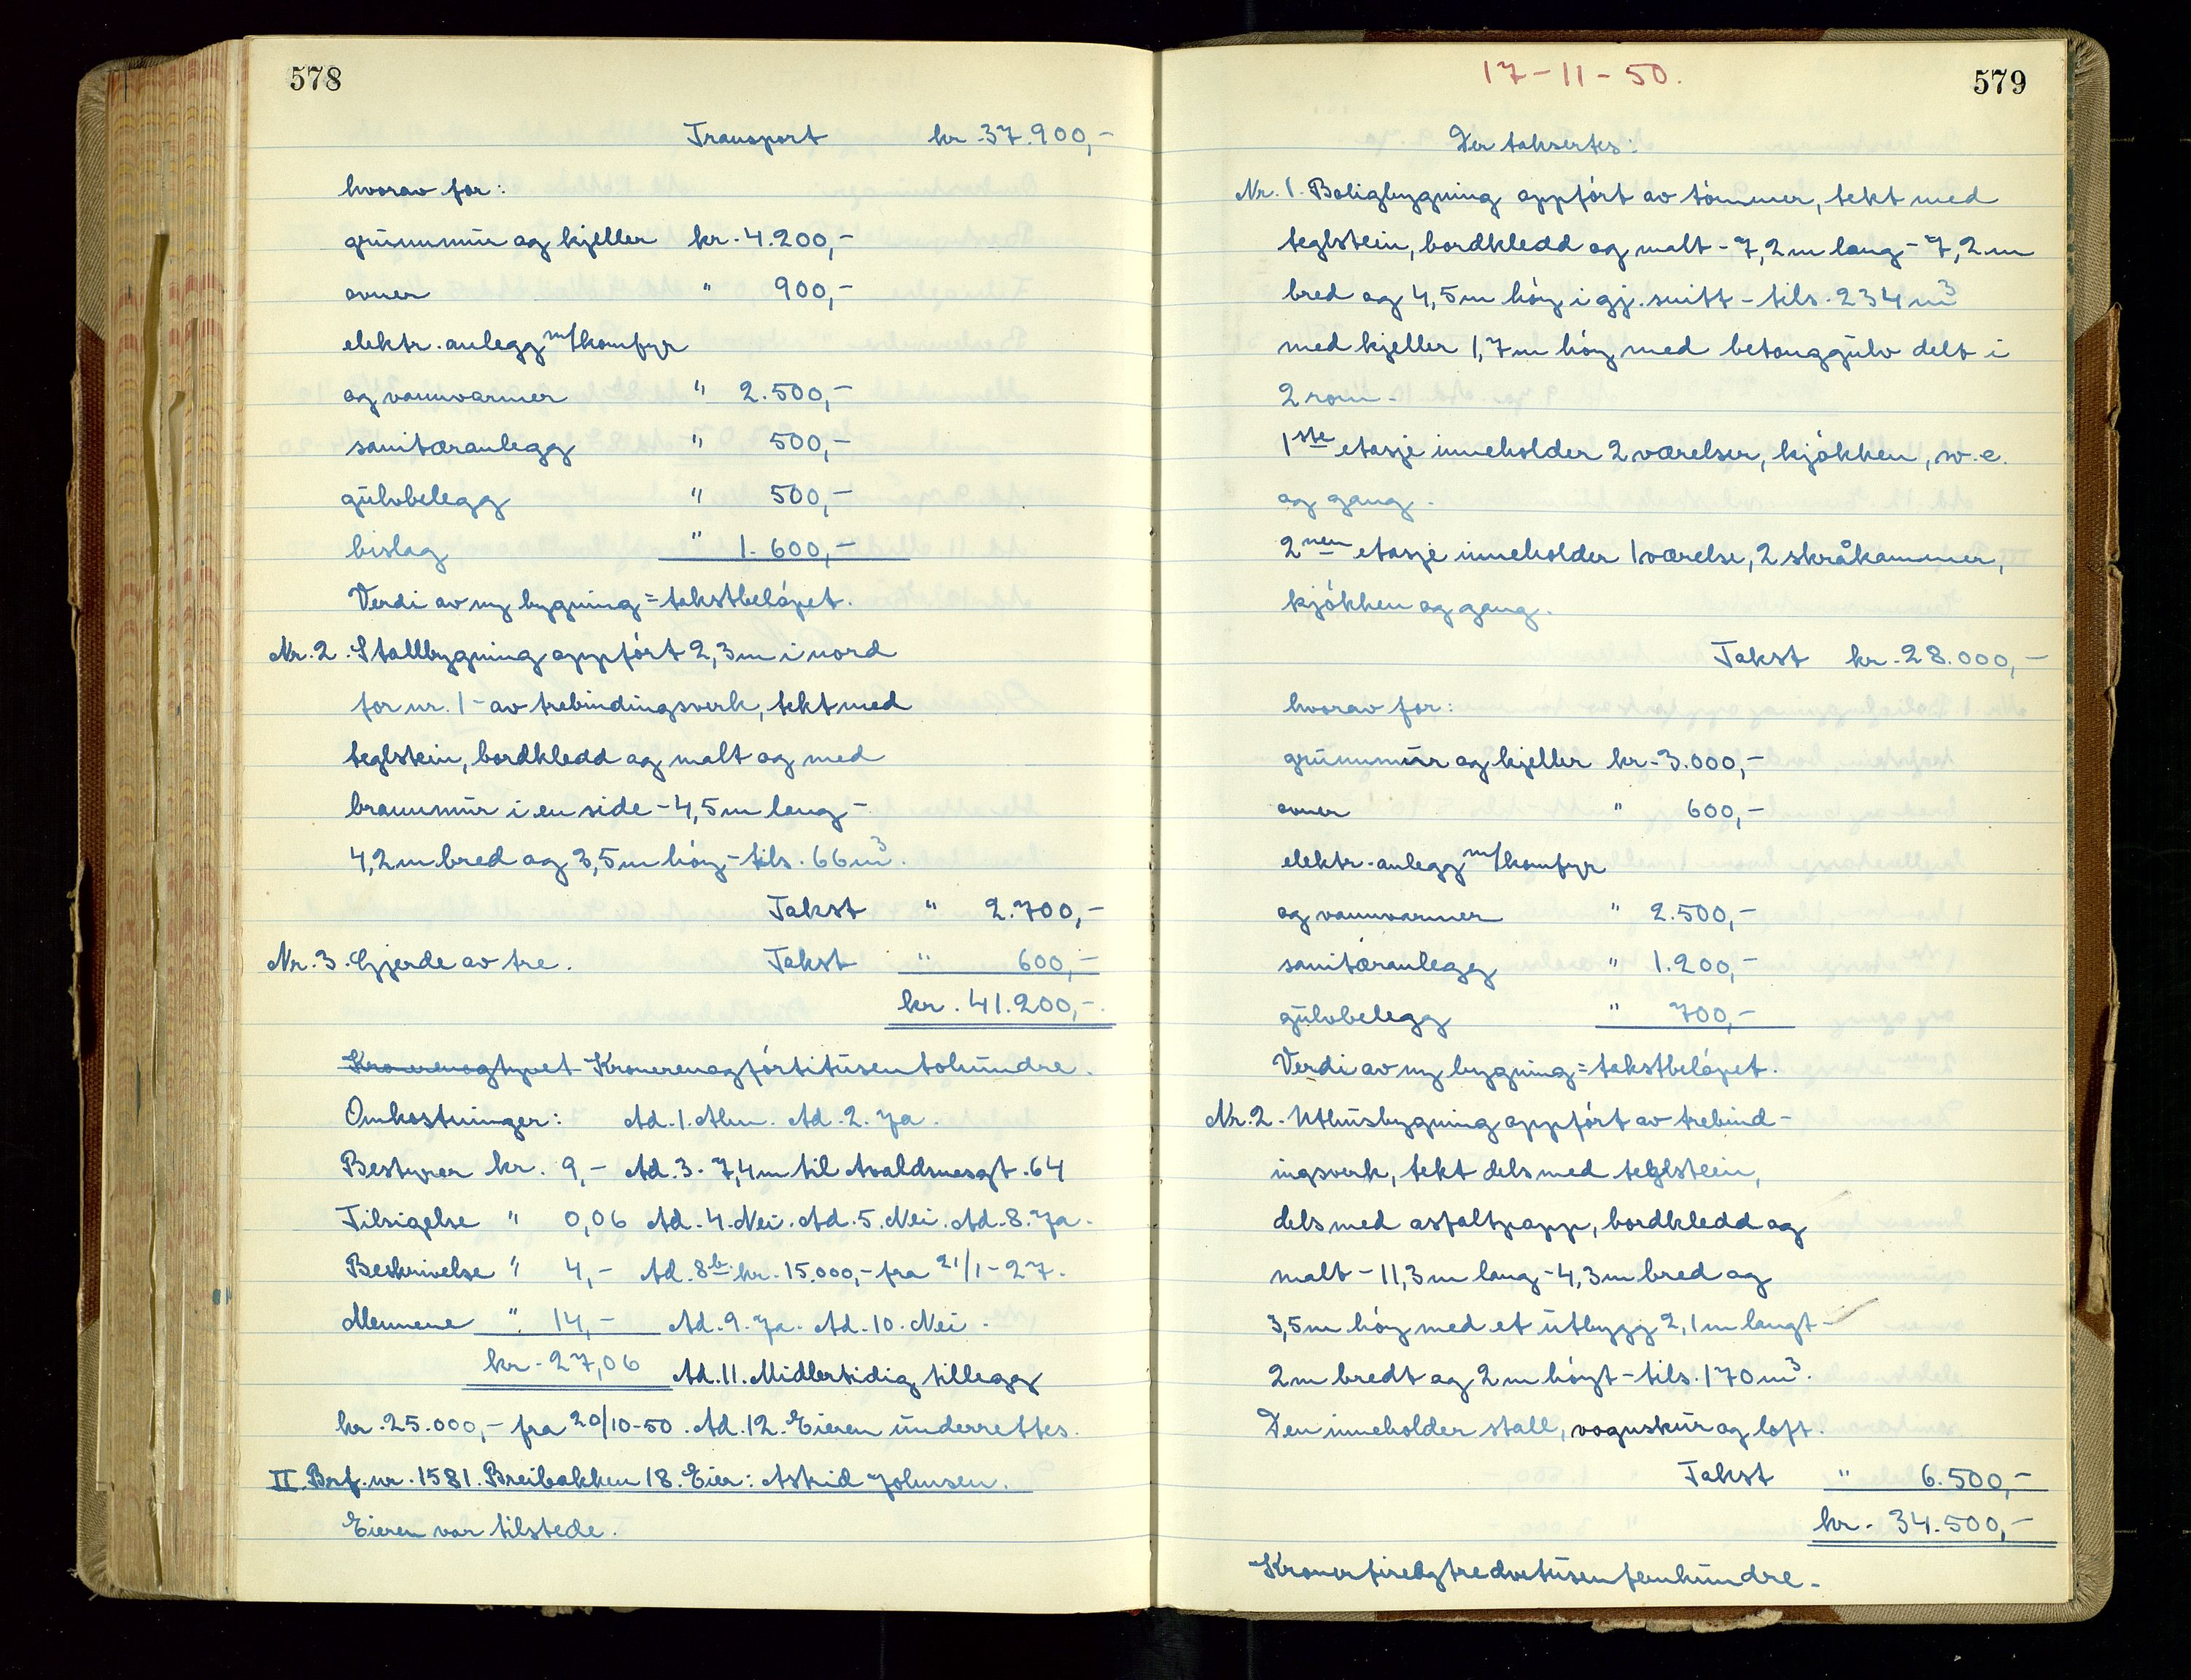 578
Transport kr. 37.900,-
hvorav for:
grunnmur og kjeller kr. 4.200,-
ovner " 900,-
elektr. anlegg m/komfyr
og vannvarmer " 2.500,-
sanitæranlegg " 500,-
gulvbelegg " 500,-
bislag " 1.600,-
Verdi av ny bygning = takstbeløpet.
Nr. 2. Stallbygning oppført 2,3 m i nord
for nr. 1 - av trebindingsverk, tekt med
teglstein, bordkledd og malt og med
brannmur i en side - 4,5 m lang -
4,2 m bred og 3,5 m høy - tils. 66 m³.
Takst " 2.700,-
Nr. 3. Gjerde av tre. Takst " 600,-
kr. 41.200,-
Kronerenogtyvet Kronerenogførtitusentohundre.
Omkostninger: Ad. 1. Alm. Ad. 2. Ja.
Bestyrer kr. 9,- Ad. 3. 7,4 m til Avaldsnesgt. 64
Tilsigelse " 0,06 Ad. 4. Nei. Ad. 5. Nei. Ad. 8. Ja.
Beskrivelse " 4,- Ad. 8 b. kr. 15.000,- fra 21/1-27.
Mennene " 14,- Ad. 9. Ja. Ad. 10. Nei.
kr. 27,06 Ad. 11. Midlertidig tillegg
kr. 25.000,- fra 20/10-50. Ad. 12. Eieren underrettes.
II. Brf. nr. 1581. Breibakken 18. Eier: Astrid Johnsen.
Eieren var tilstede.
17-11-50.
579
Der taksertes:
Nr. 1. Boligbygning oppført av tømmer, tekt med
teglstein, bordkledd og malt - 7,2 m lang - 7,2 m
bred og 4,5 m høy i gj. snitt - tils. 234 m³
med kjeller 1,7 m høy med betonggulv delt i
2 rom.
1ste etasje inneholder 2 værelser, kjøkken, w.c.
og gang.
2nen etasje inneholder 1 værelse, 2 skråkammer,
kjøkken og gang.
Takst kr. 28.000,-
hvorav for:
grunnmur og kjeller kr. 3.000,-
ovner " 600,-
elektr. anlegg m/komfyr
og vannvarmer " 2.500,-
sanitæranlegg " 1.200,-
gulvbelegg " 700,-
Verdi av ny bygning = takstbeløpet.
Nr. 2. Uthusbygning oppført av trebind-
ingsverk, tekt dels med teglstein,
dels med asfaltpapp, bordkledd og
malt - 11,3 m lang - 4,3 m bred og
3,5 m høy med et utbygg 2,1 m langt -
2 m bredt og 2 m høyt - tils. 170 m³.
Den inneholder stall, vognskur og loft.
Takst " 6.500,-
kr. 34.500,-
Kronerfireogtredvetusenfemhundre.